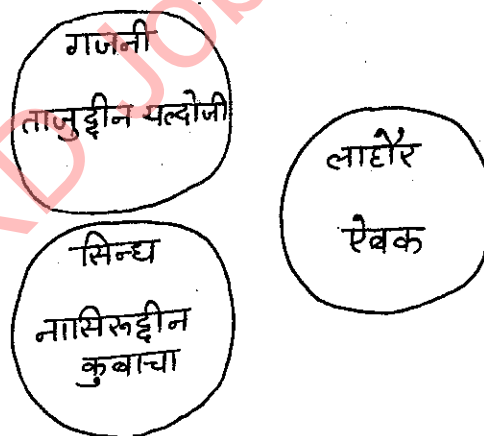 गजनी
ताजुद्दीन यल्दोजी
लाहौर
ऐबक
सिन्ध
नासिरुद्दीन
कुबाचा